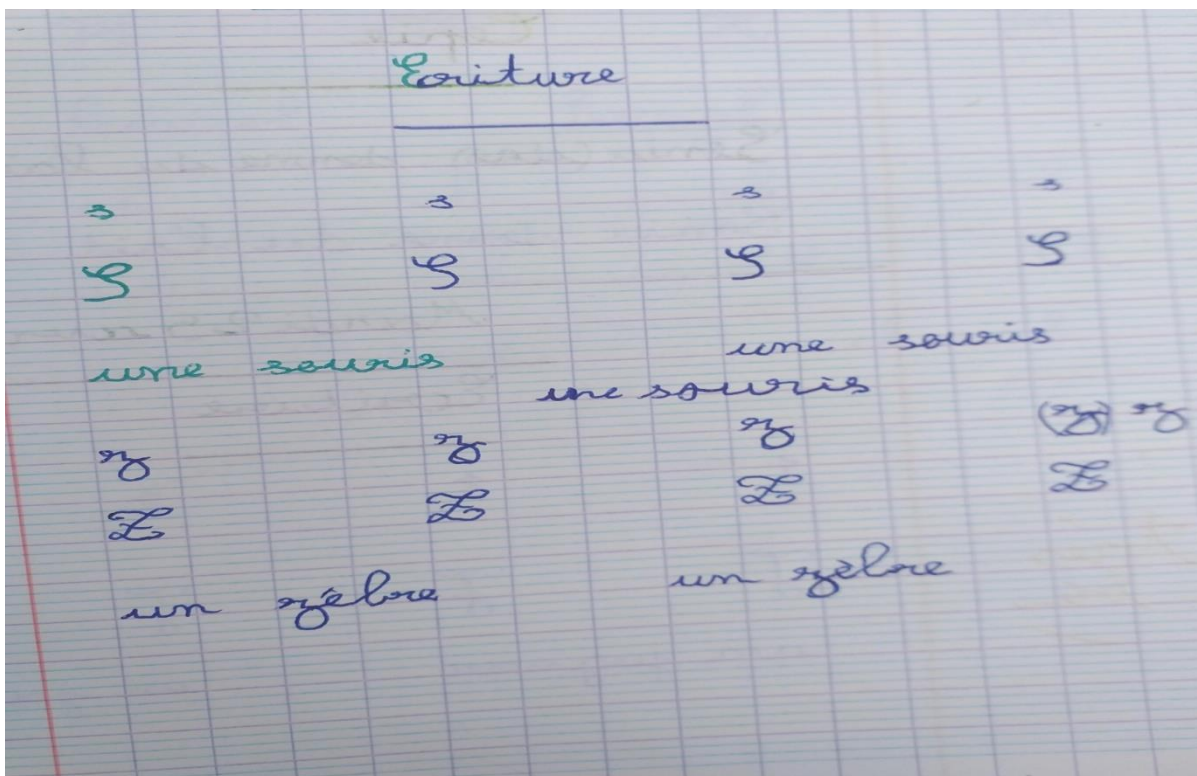 Ecriture
s s s s
S S S S
une souris une souris
une souris
z z z (z) z
Z Z Z Z
un zèbre un zèbre